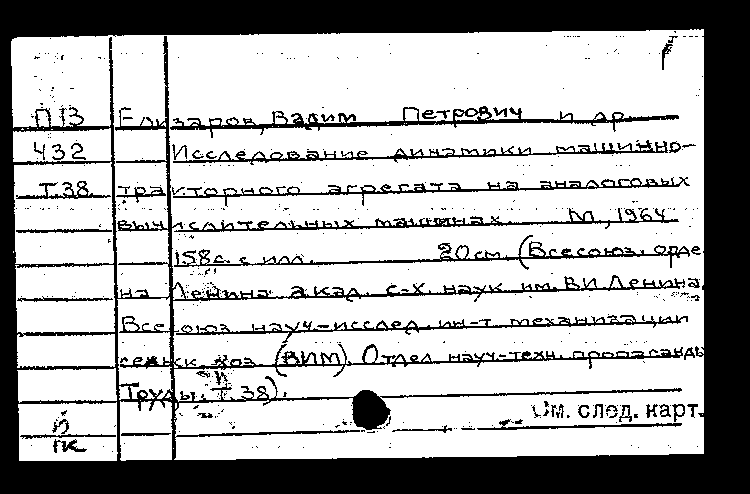 П 13 Елизаров, Вадим Петрович и др.
432 Исследование динамики машинно-
Т.38. тракторного агрегата на аналоговых
вычислительных машинах. М, 1964
158с. с илл. 20 см. (Всесоюз. орде
на Ленина акад. с-х. наук им. В.И Ленина.
Всесоюз науч-исслед. ин-т механизации
сельск. хоз (ВИМ). Отдел науч-техн. пропаганды
Труды. Т. 38).
См. след. карт.
ПК